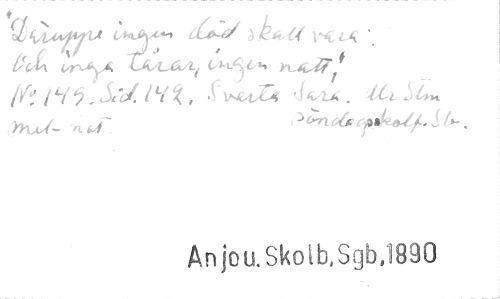 "Däruppe ingen död skall vara:
Och inga tårar, ingen natt,"
No. 149. Sid. 142. Svarta Sara. Ur Stm
met- nat. Söndagsskolf. Sb.
Anjou. Skolb, Sgb, 1890